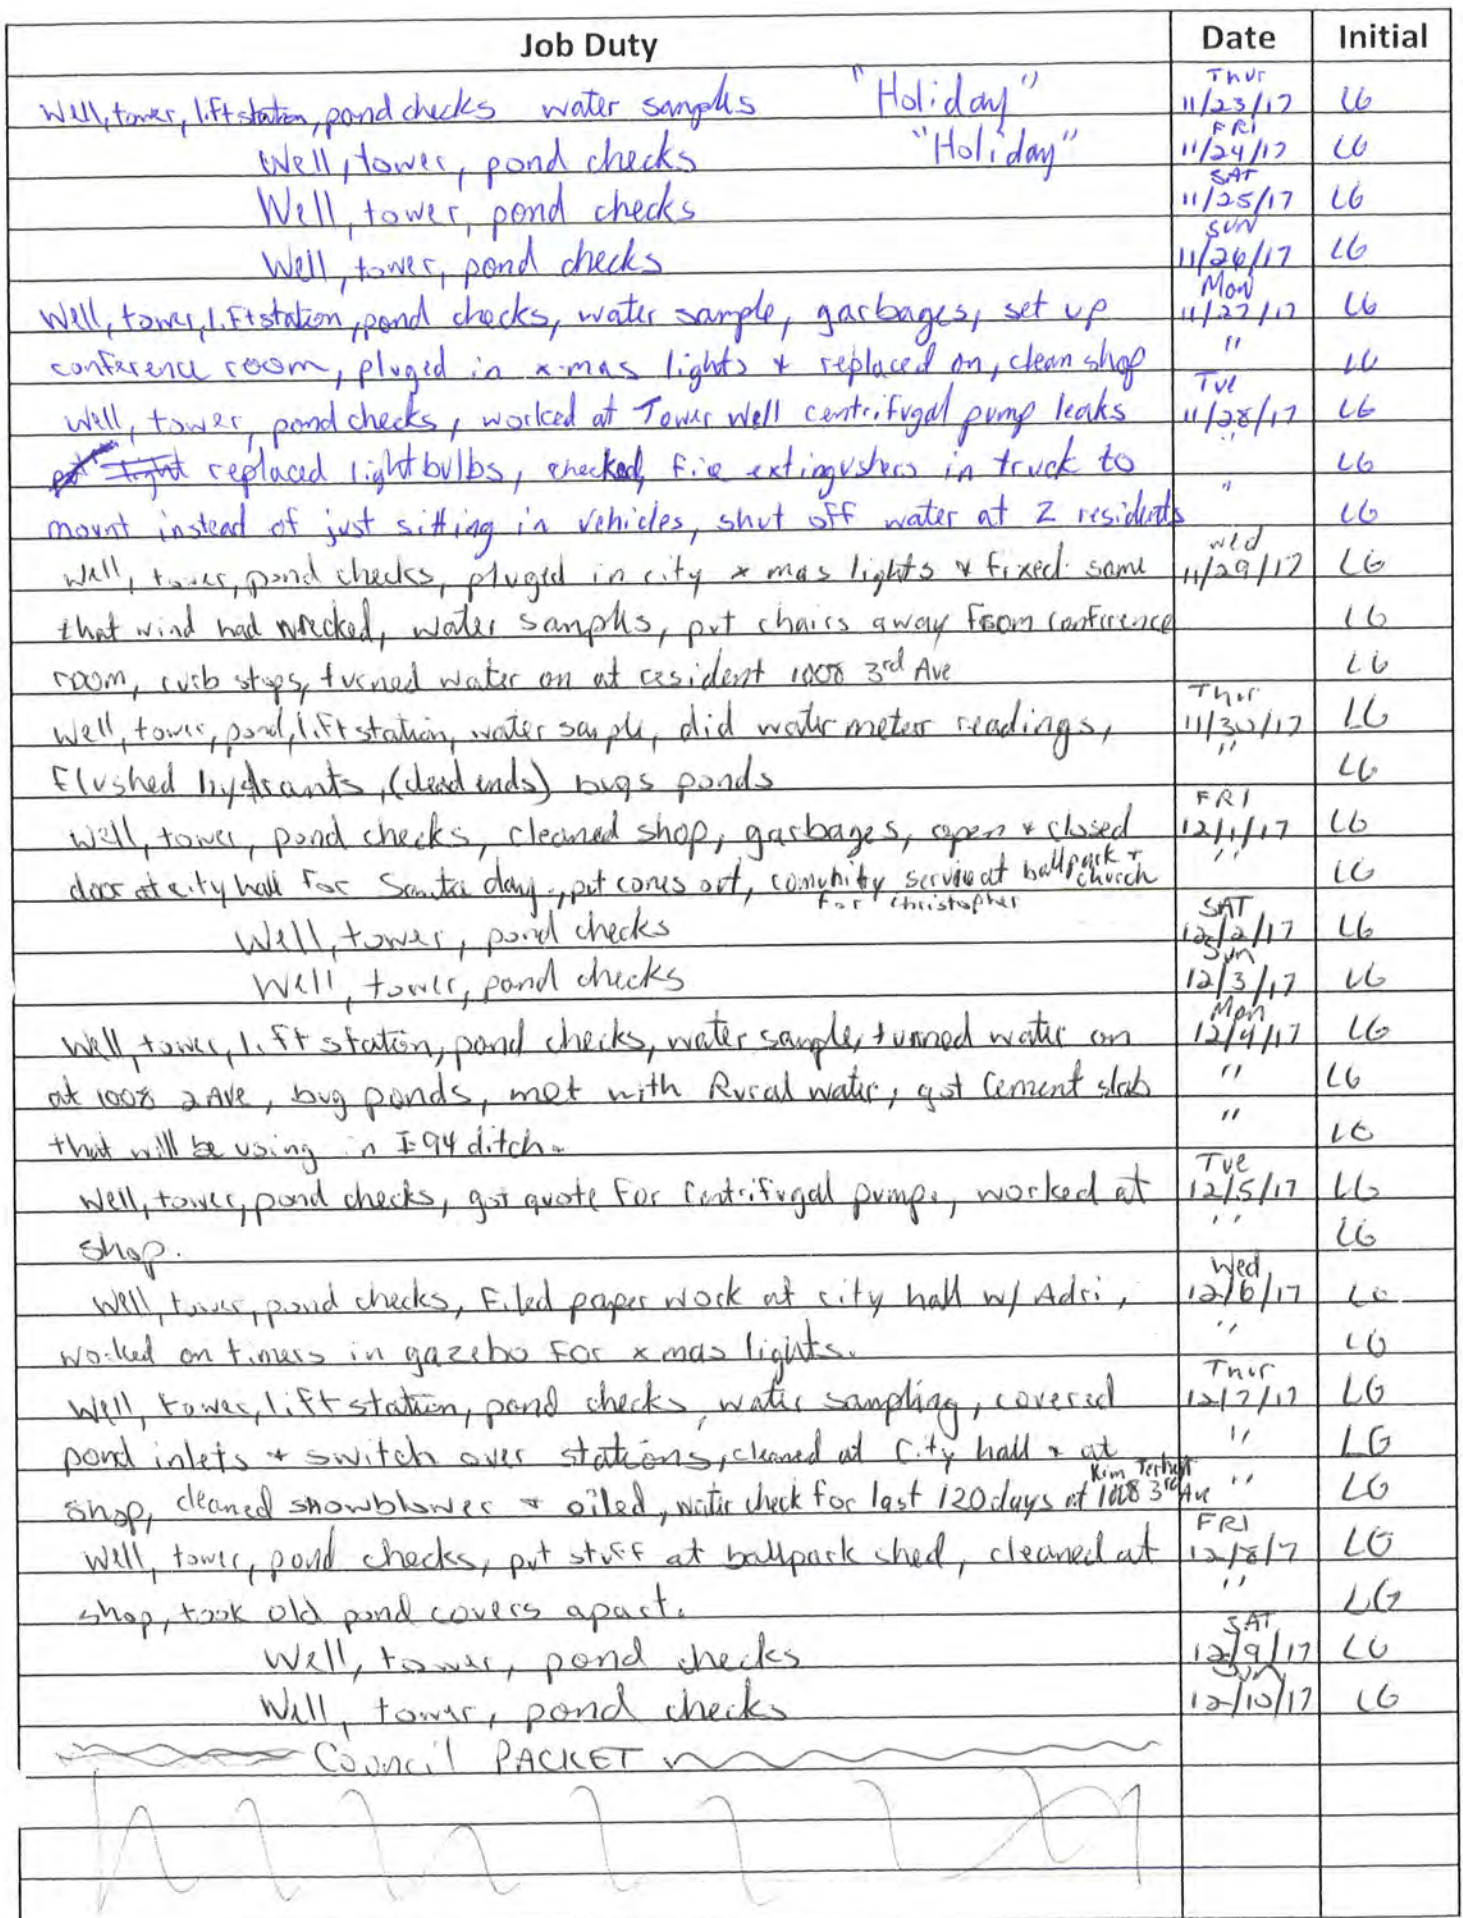 Job Duty Date Initial
Well, tower, lift station, pond checks water samples "Holiday" Thur 11/23/17 LG
Well, tower, pond checks "Holiday" FRI 11/24/17 LG
Well, tower, pond checks SAT 11/25/17 LG
Well, tower, pond checks SUN 11/26/17 LG
Well, tower, lift station, pond checks, water sample, garbages, set up Mon 11/27/17 LG
conference room, pluged in x-mas lights & replaced on, clean shop " LG
Well, tower, pond checks, worked at Tower Well centrifugal pump leaks Tue 11/28/17 LG
replaced lightbulbs, checked, fire extingushers in truck to " LG
mount instead of just sitting in vehicles, shut off water at 2 residents " LG
Well, tower, pond checks, pluged in city x mas lights & fixed some wed 11/29/17 LG
that wind had wrecked, water samples, put chairs away from conference LG
room, curb stops, turned water on at resident 1008 3rd Ave LG
Well, tower, pond, lift station, water sample, did water meter readings, Thur 11/30/17 LG
flushed hydrants, (dead ends) bugs ponds " LG
Well, tower, pond checks, cleaned shop, garbages, open & closed FRI 12/1/17 LG
door at city hall for Santa day, put cones out, comunity service at ballpark & church for Christopher " LG
Well, tower, pond checks SAT 12/2/17 LG
Well, tower, pond checks Sun 12/3/17 LG
Well, tower, lift station, pond checks, water sample, turned water on Mon 12/4/17 LG
at 1008 2 Ave, bug ponds, met with Rural water, got Cement slab " LG
that will be using in I-94 ditch. " LG
Well, tower, pond checks, got quote for Centrifugal pump, worked at Tue 12/5/17 LG
shop. " LG
Well, tower, pond checks, Filed paper work at city hall w/ Adri, Wed 12/6/17 LG
worked on timers in gazebo for x mas lights. " LG
Well, tower, lift station, pond checks, water sampling, covered Thur 12/7/17 LG
pond inlets & switch over stations, cleaned at City hall & at " LG
shop, cleaned snowblower & oiled, water check for last 120 days at Kim 1008 3rd Ave " LG
Well, tower, pond checks, put stuff at ballpark shed, cleaned at FRI 12/8/7 LG
shop, took old pond covers apart. " LG
Well, tower, pond checks SAT 12/9/17 LG
Well, tower, pond checks Sun 12/10/17 LG
Council PACKET